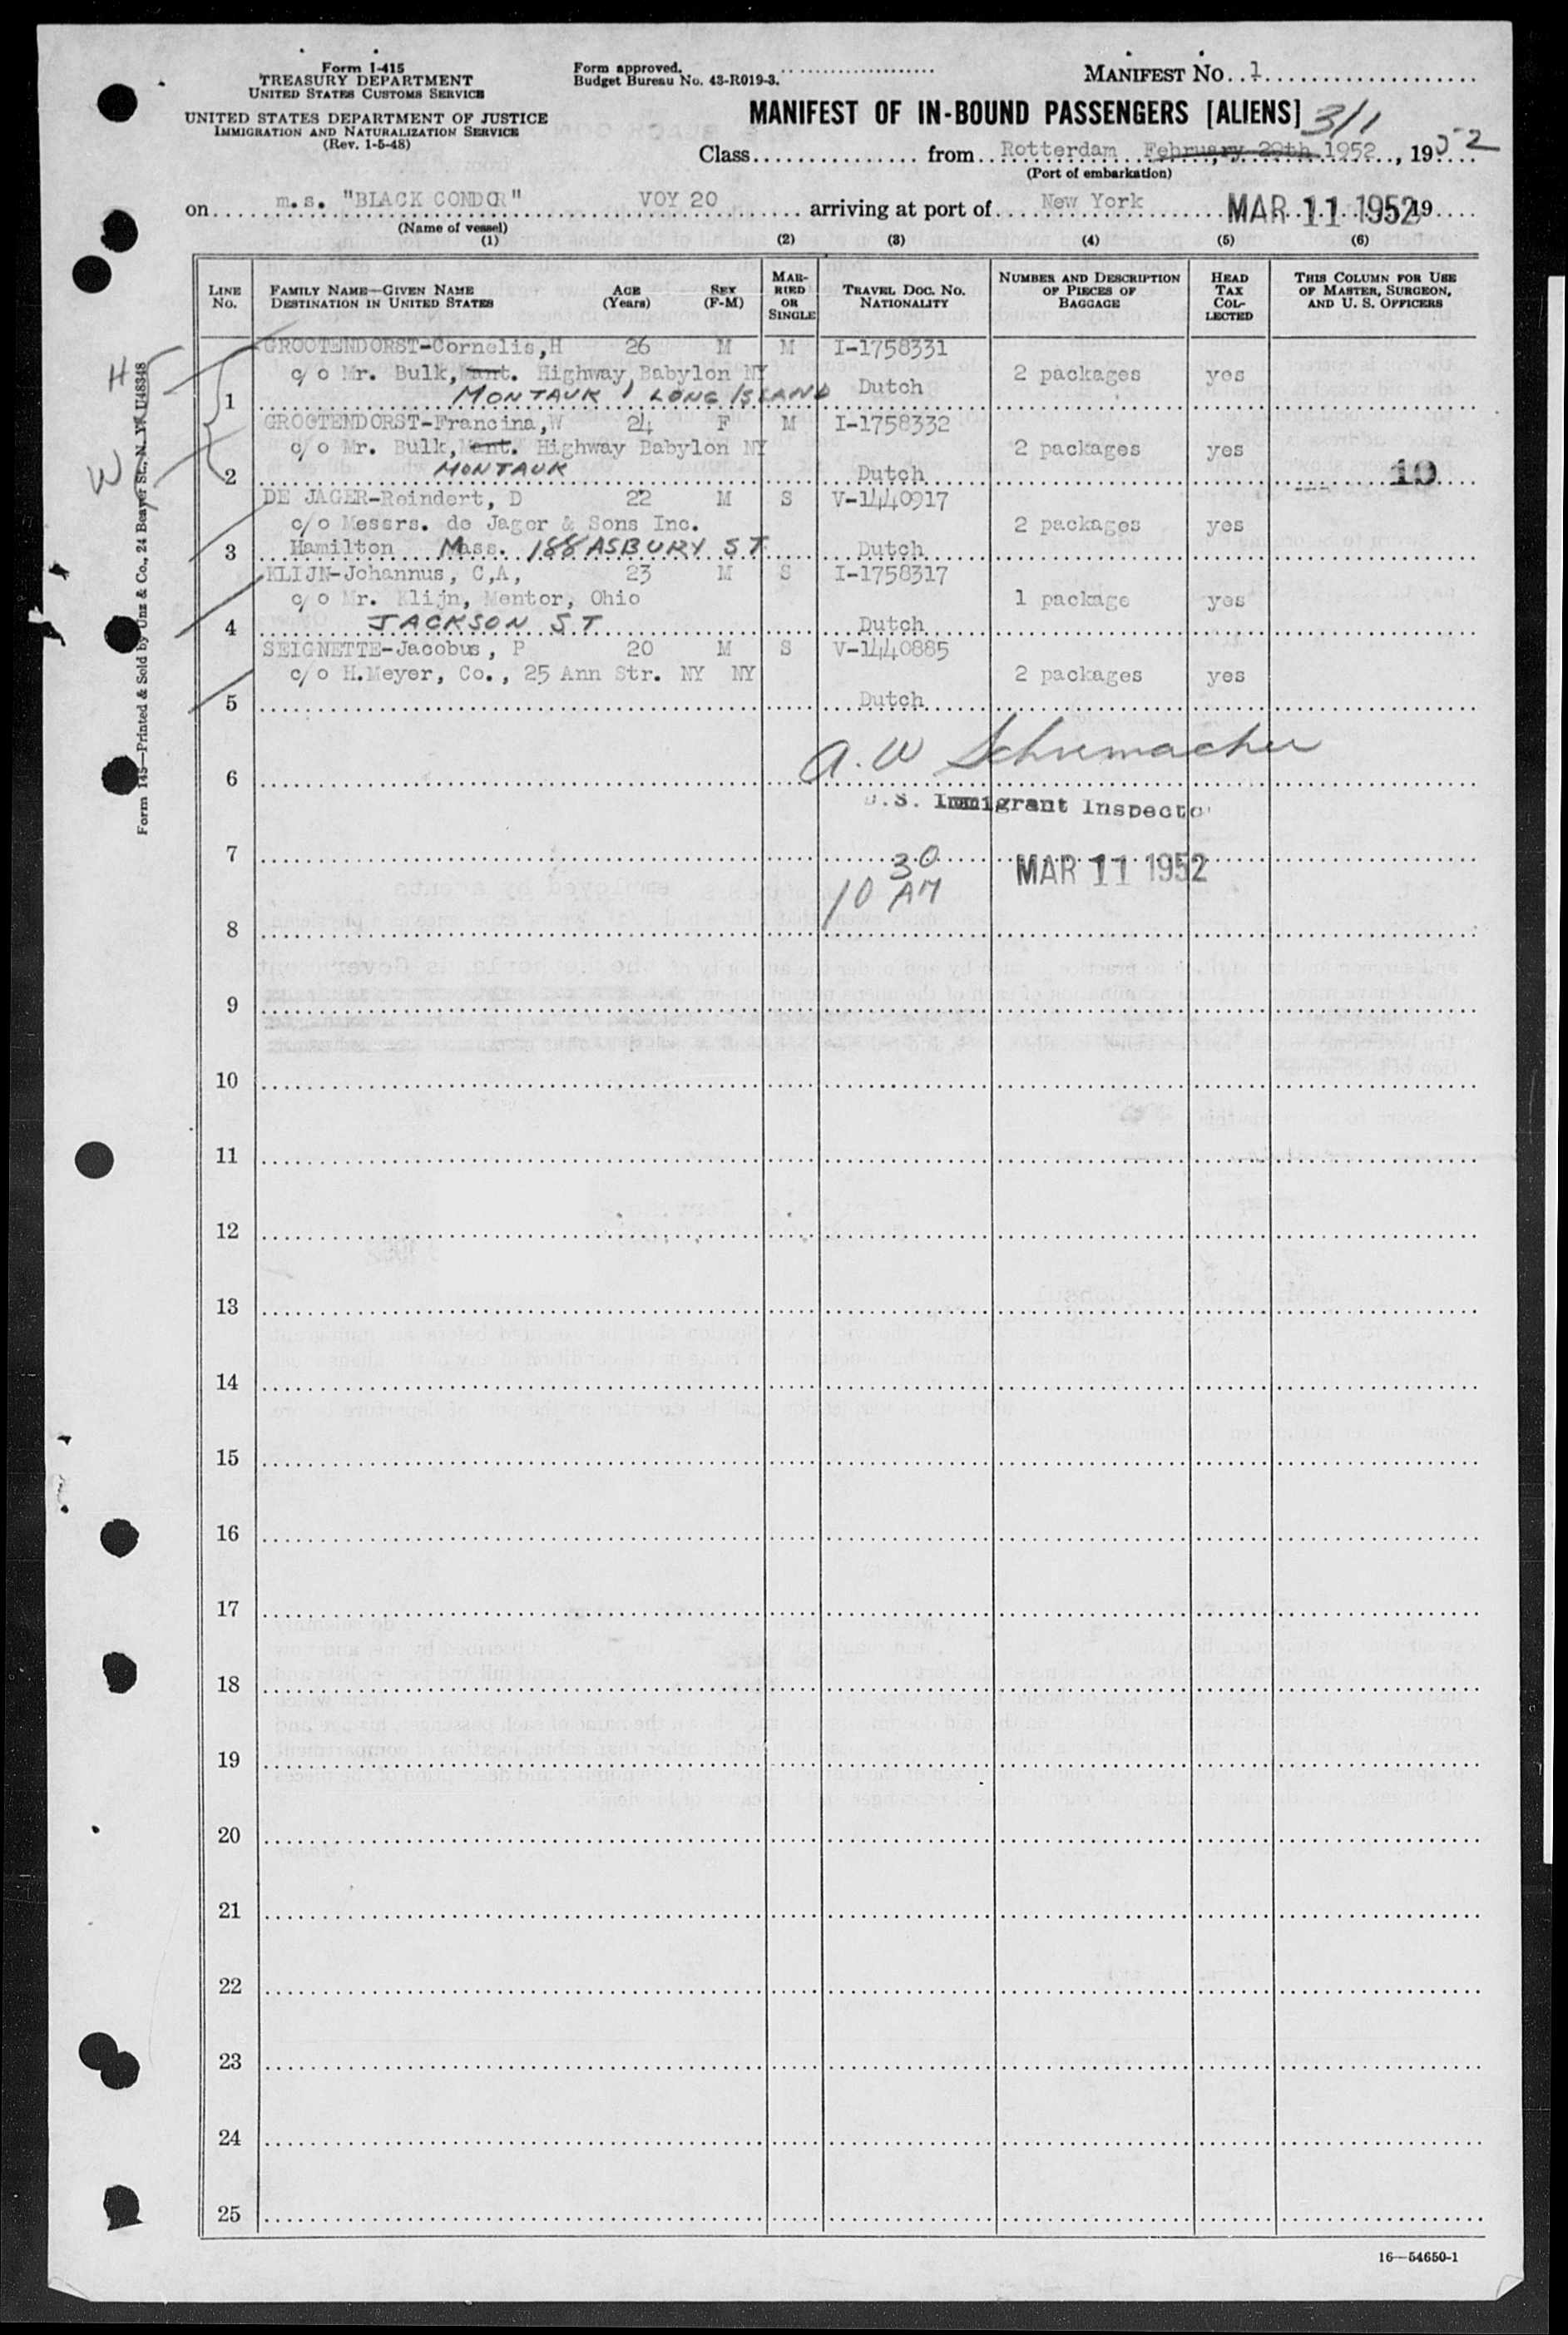 Form I-415
TREASURY DEPARTMENT
UNITED STATES CUSTOMS SERVICE
UNITED STATES DEPARTMENT OF JUSTICE
IMMIGRATION AND NATURALIZATION SERVICE
(Rev. 1-5-48)
Form approved.
Budget Bureau No. 43-R019-3.
MANIFEST NO. 1
MANIFEST OF IN-BOUND PASSENGERS [ALIENS] 3/1
Class from Rotterdam February 29th 1952, 1952
(Port of embarkation)
on m.s. "BLACK CONDOR" VOY 20 arriving at port of New York MAR 11 1952 19
(Name of vessel)
(1) (2) (3) (4) (5) (6)
LINE NO. FAMILY NAME—GIVEN NAME DESTINATION IN UNITED STATES AGE (Years) SEX (F-M) MARRIED OR SINGLE TRAVEL DOC. NO. NATIONALITY NUMBER AND DESCRIPTION OF PIECES OF BAGGAGE HEAD TAX COLLECTED THIS COLUMN FOR USE OF MASTER, SURGEON, AND U. S. OFFICERS
GROOTENDORST-Cornelis, H 26 M M I-1758331
H c/o Mr. Bulk, Mant. Highway Babylon NY Dutch 2 packages yes
1 MONTAUK, LONG ISLAND
GROOTENDORST-Francina, W 24 F M I-1758332
c/o Mr. Bulk, Mant. Highway Babylon NY 2 packages yes
W 2 MONTAUK Dutch 10
DE JAGER-Reindert, D 22 M S V-1440917
c/o Messrs. de Jager & Sons Inc. 2 packages yes
3 Hamilton Mass. 188 ASBURY ST Dutch
KLIJN-Johannus, C,A, 23 M S I-1758317
c/o Mr. Klijn, Mentor, Ohio 1 package yes
4 JACKSON ST Dutch
SEIGNETTE-Jacobus, P 20 M S V-1440885
c/o H.Meyer, Co., 25 Ann Str. NY NY 2 packages yes
5 Dutch
A. W Schumacher
6
U.S. Immigrant Inspector
7 30
10 AM MAR 11 1952
8
9
10
11
12
13
14
15
16
17
18
19
20
21
22
23
24
25
16—54650-1
Form 145—Printed & Sold by Unz & Co., 24 Beaver St., N. Y. U48348